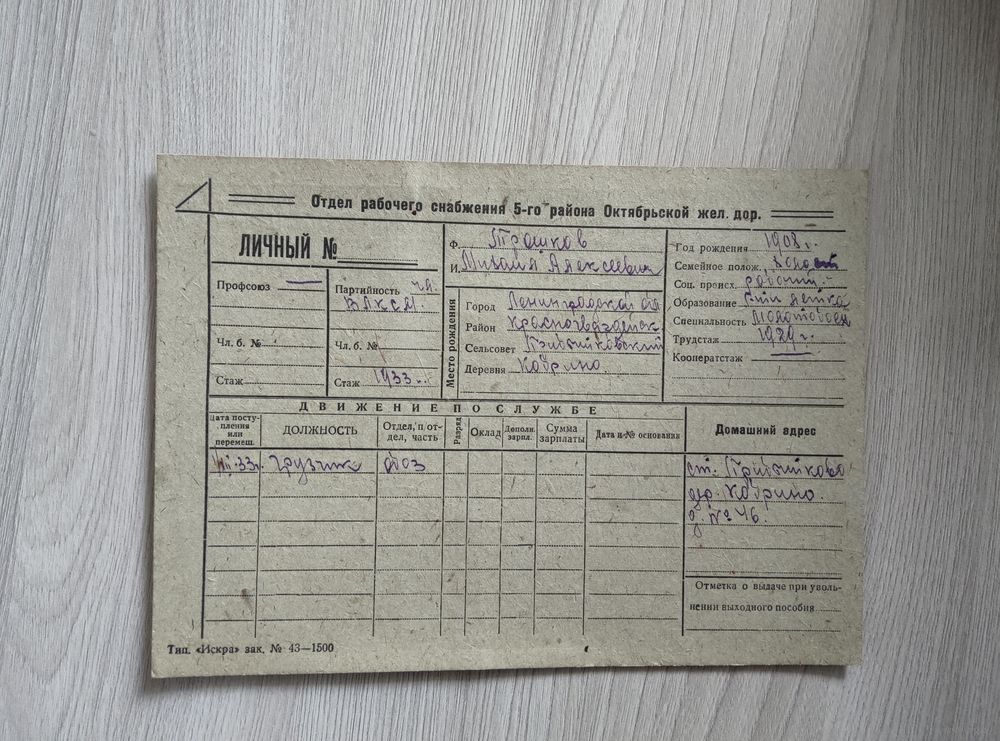 Отдел рабочего снабжения 5-го района Октябрьской жел. дор.
ЛИЧНЫЙ №
Профсоюз —
Партийность чл.
ВЛКСМ.
Чл. б. №
Чл. б. №
Стаж
Стаж 1933 г.
Ф. Трошков
И. Михаил Алексеевич
Место рождения
Город Ленинградской обл
Район Красногвардейск
Сельсовет Прибытковский
Деревня Кобрино
Год рождения 1908 г.
Семейное полож. Холост
Соц. происх. рабочий
Образование 5-ти летка
Специальность Молотобоец
Трудстаж 1929 г.
Кооператстаж —
ДВИЖЕНИЕ ПО СЛУЖБЕ
Дата поступления или перемещ.
ДОЛЖНОСТЬ
Отдел, п отдел, часть
Разряд
Оклад
Дополн. зарпл.
Сумма зарплаты
Дата и № основания
Домашний адрес
VIII-33г. грузчик обоз
ст. Прибытково
др. Кобрино.
д. № 46.
Отметка о выдаче при уволь-
нении выходного пособия
Тип. «Искра» зак. № 43—1500